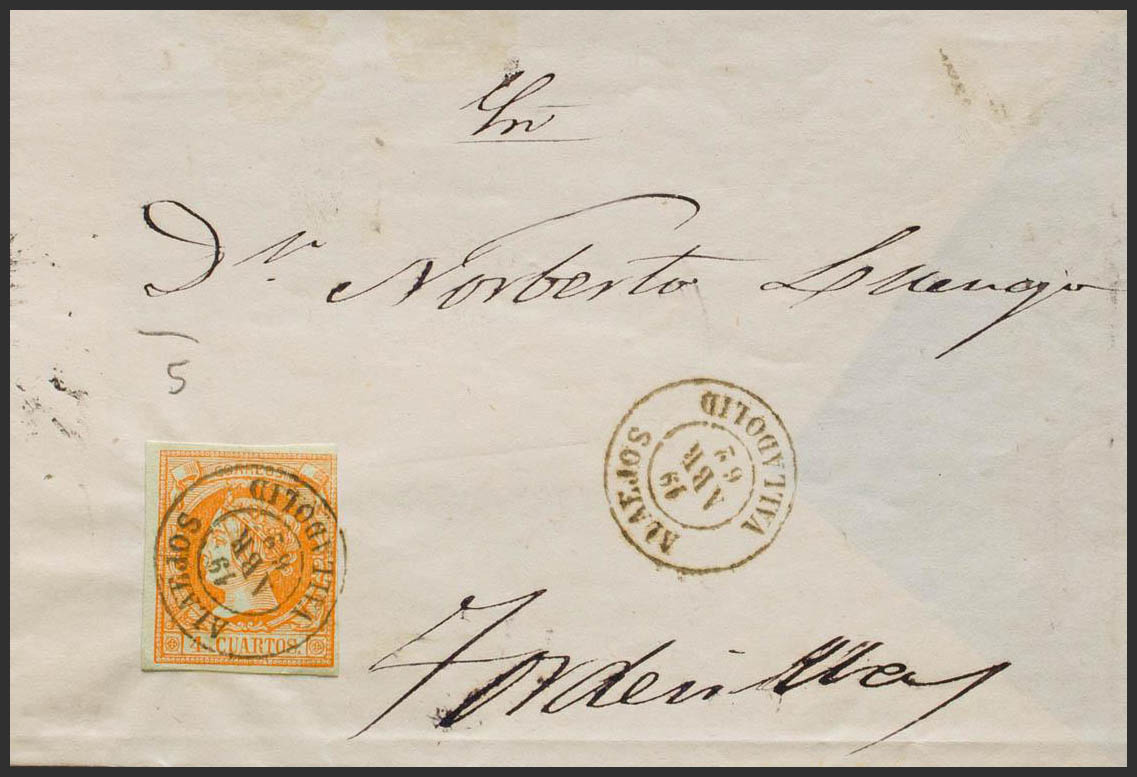 Sn
Dn. Norberto Luengo
5
CORREOS
4 CUARTOS.
ALAEJOS
19
ABR
62
VALLADOLID
ALAEJOS
19
ABR
62
VALLADOLID
Tordesillas